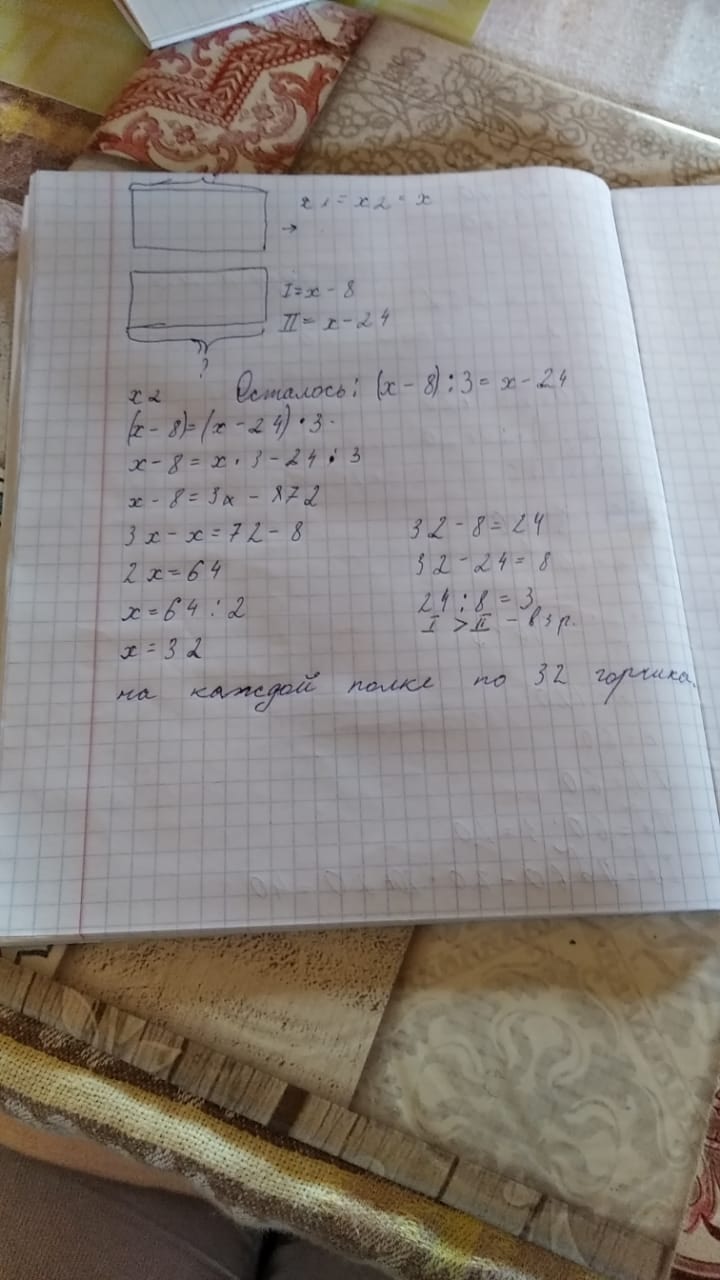 x1 = x2 = x
→
I = x - 8
II = x - 24
?
x2 Осталось: (x - 8) : 3 = x - 24
(x - 8) = (x - 24) · 3
x - 8 = x · 3 - 24 · 3
x - 8 = 3x - 72
3x - x = 72 - 8
2x = 64
x = 64 : 2
x = 32
32 - 8 = 24
32 - 24 = 8
24 : 8 = 3
I > II - в 3 р.
на каждой полке по 32 горшка.